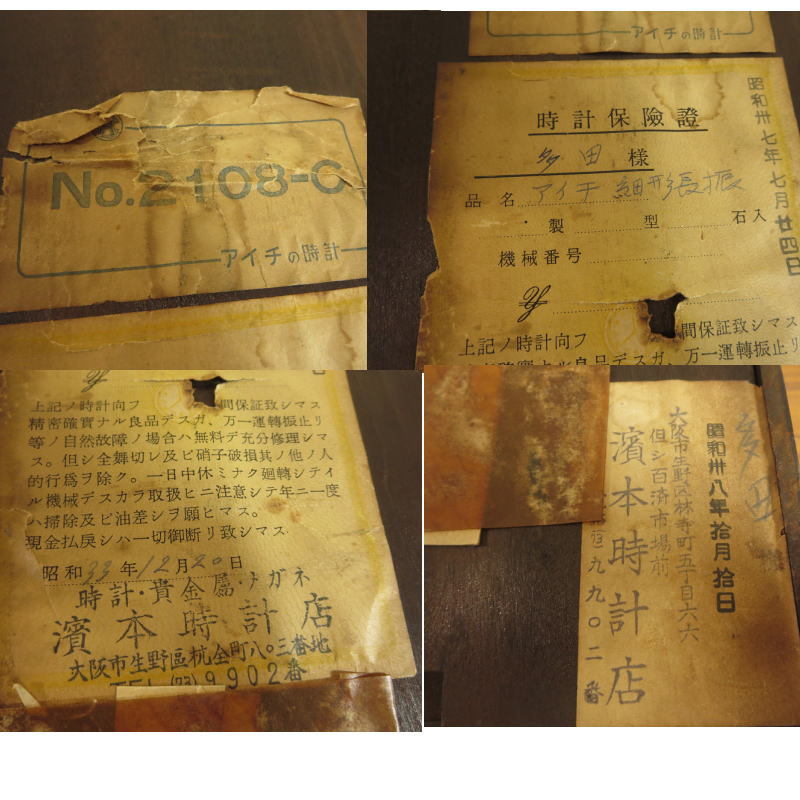 No.2108-C
アイチの時計
アイチの時計
昭和卅七年七月廿四日
時計保險證
多田様
品名 アイチ 細形長振
・製 型 石入
機械番号
¥
上記ノ時計向フ 間保証致シマス
ナル良品デスガ、万一運轉振止リ
上記ノ時計向フ 間保証致シマス
精密確實ナル良品デスガ、万一運轉振止リ
等ノ自然故障ノ場合ハ無料デ充分修理シマ
ス。但シ全舞切レ及ビ硝子破損其ノ他ノ人
的行爲ヲ除ク。一日中休ミナク廻轉シテイ
ル機械デスカラ取扱ヒニ注意シテ年ニ一度
ハ掃除及ビ油差シヲ願ヒマス。
現金払戻シハ一切御断リ致シマス
昭和33年12月20日
時計・貴金属・メガネ
濱本時計店
大阪市生野區杭全町八〇三番地
TEL (73) 9902番
多田様
昭和卅八年拾月拾日
大阪市生野区林寺町五丁目六六
但シ百済市場前
濱本時計店
九九〇二番